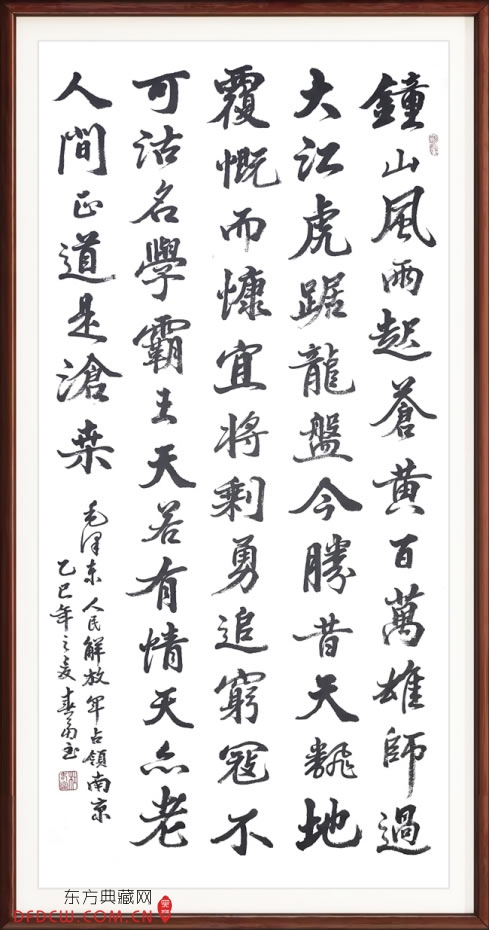 鐘山風雨起蒼黄百萬雄師過
大江虎踞龍盤今勝昔天翻地
覆慨而慷宜将剩勇追窮寇不
可沽名學霸王天若有情天亦老
人間正道是滄桒
毛泽东人民解放军占領南京
乙巳年之夏春
东方典藏网
DFDCW.COM.CN